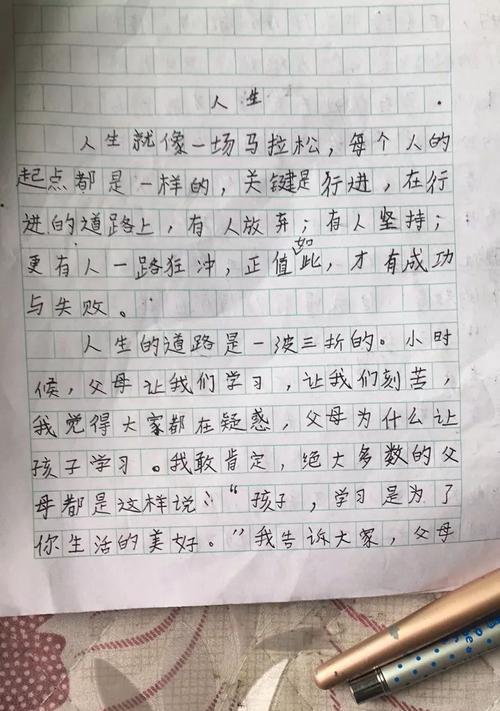 人生
人生就像一场马拉松，每个人的
起点都是一样的，关键是行进，在行
进的道路上，有人放弃；有人坚持；
更有人一路狂冲，正值如此，才有成功
与失败。
人生的道路是一波三折的。小时
候，父母让我们学习，让我们刻苦，
我觉得大家都在疑惑，父母为什么让
孩子学习。我敢肯定，绝大多数的父
母都是这样说：“孩子，学习是为了
你生活的美好。”我告诉大家，父母